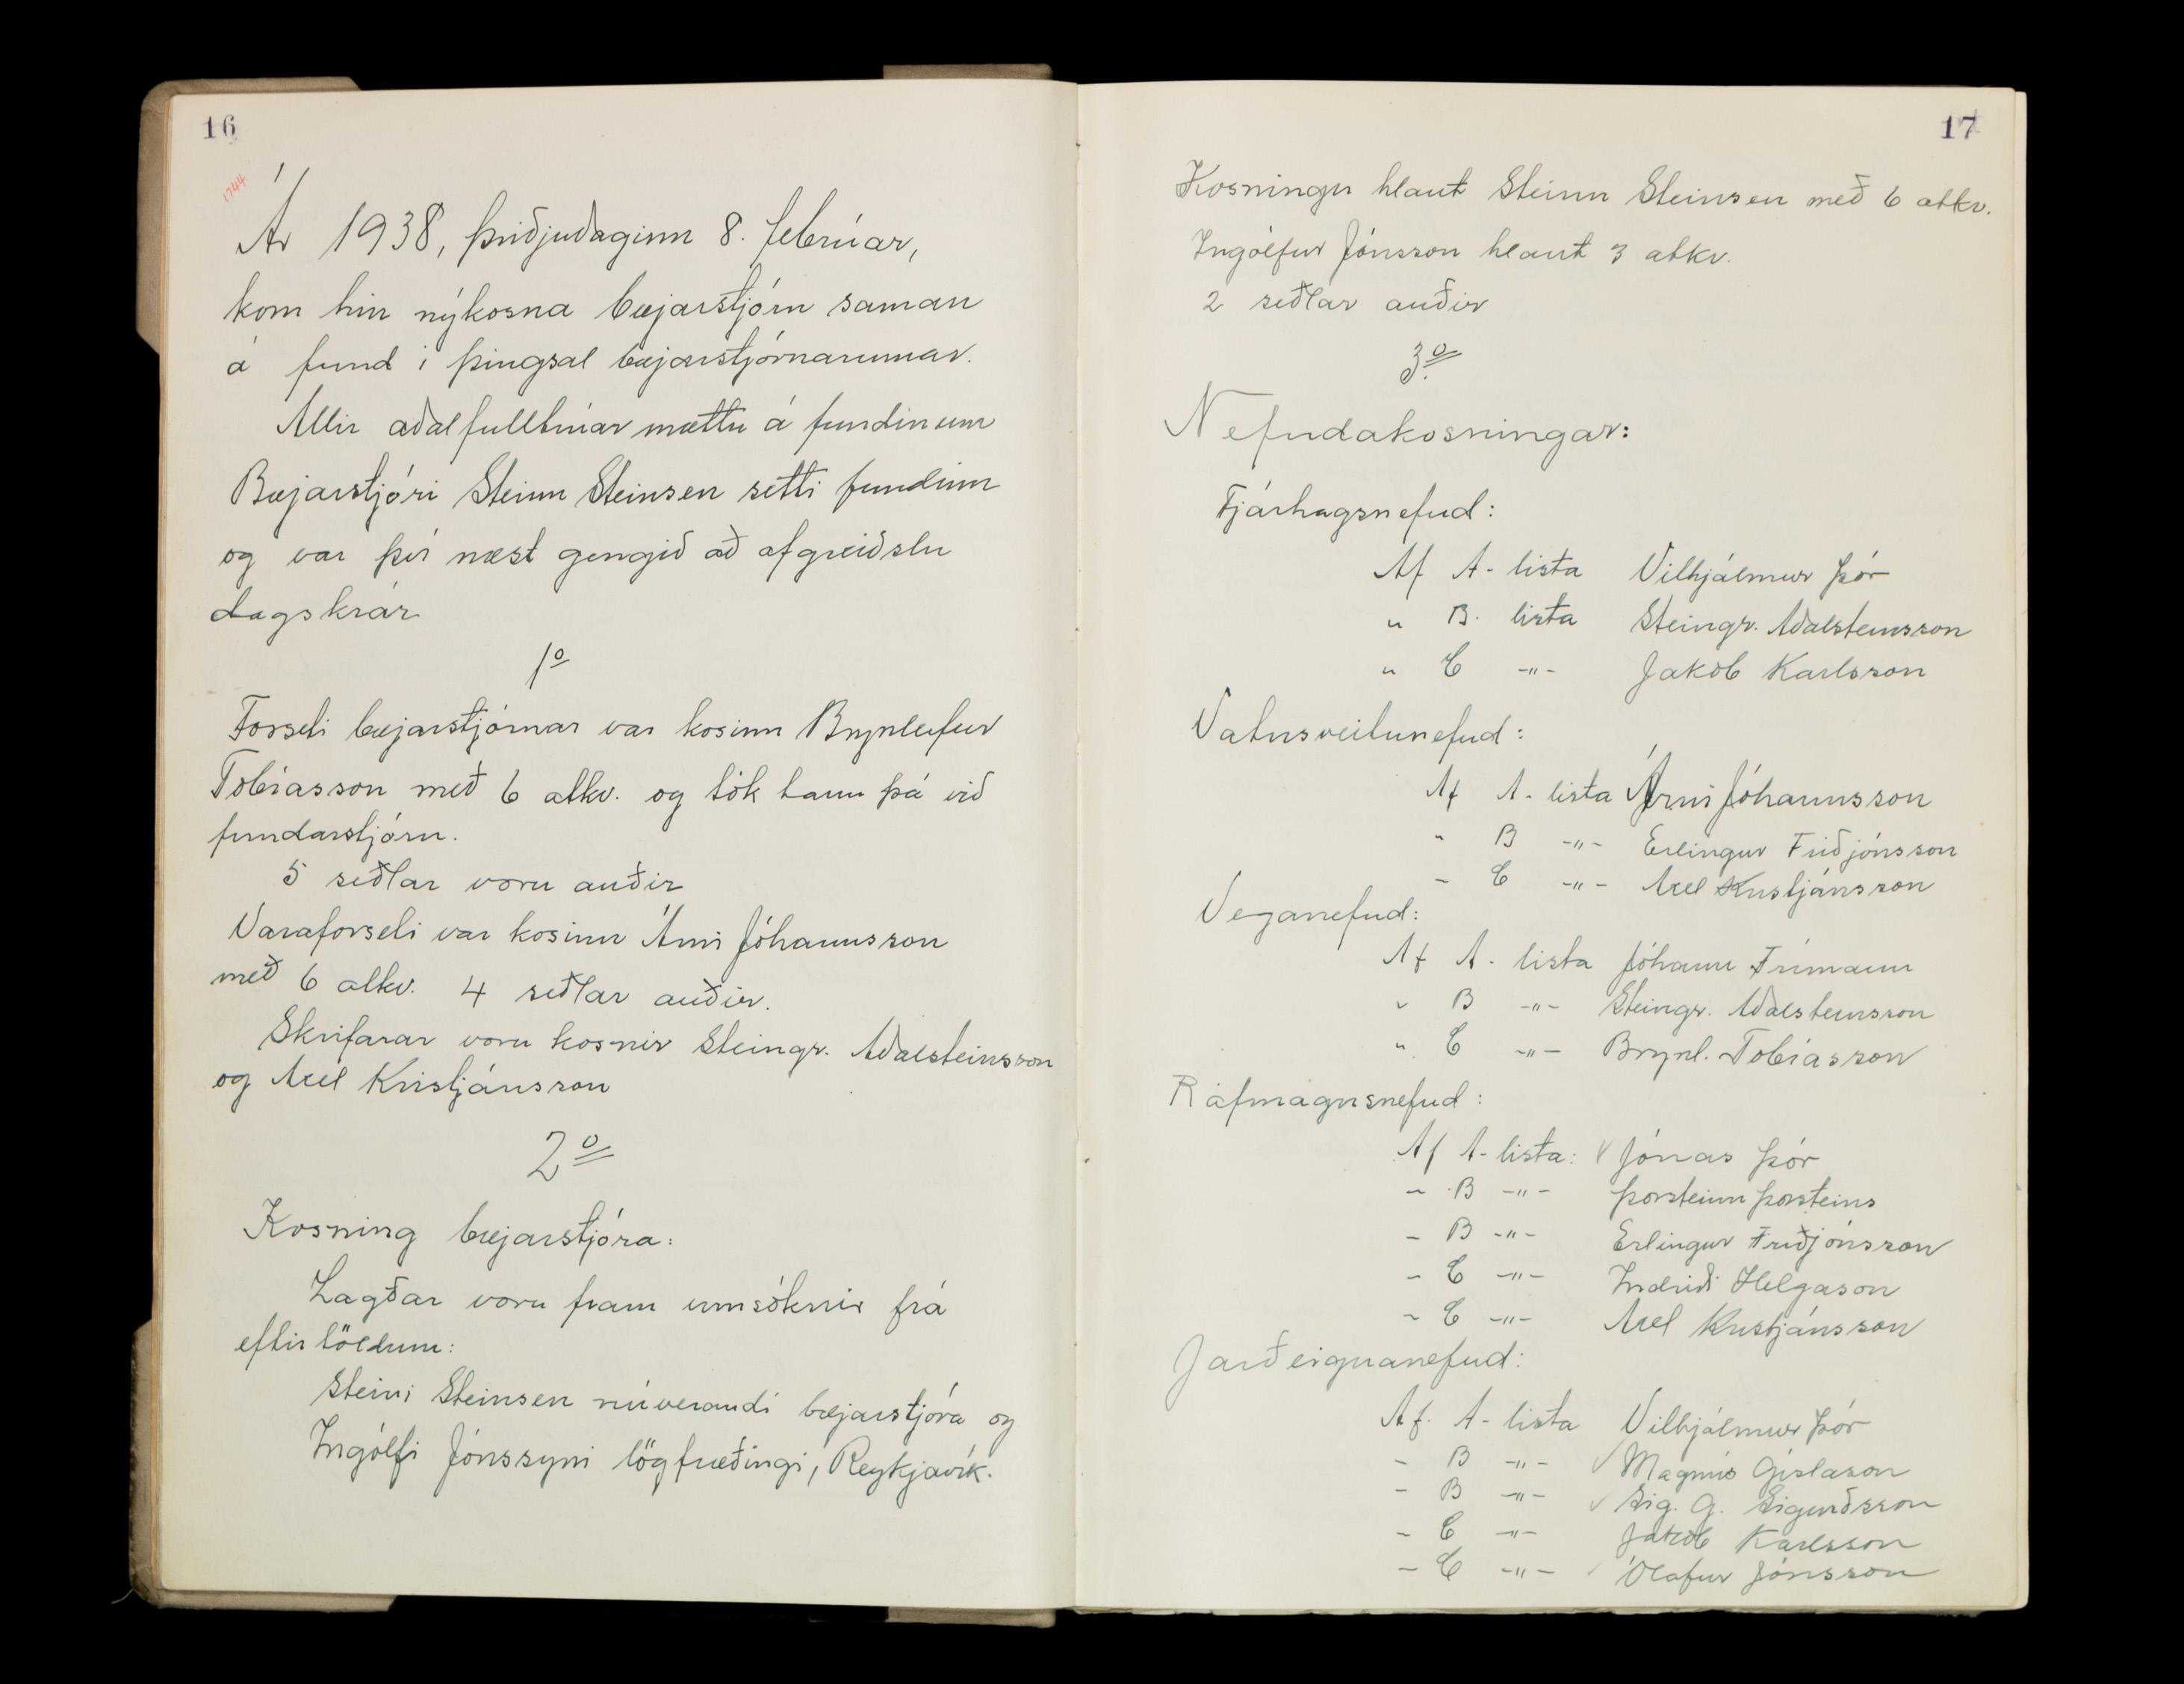 16
1744
Ár 1938, þriðjudaginn 8. febrúar,
kom hin nýkosna bæjarstjórn saman
á fund í þingsal bæjarstjórnarinnar.
Allir aðalfulltrúar mættu á fundinum
Bæjarstjóri Steinn Steinsen setti fundinn
og var því næst gengið að afgreiðslu
dagskrár
1º
Forseti bæjarstjórnar var kosinn Brynleifur
Tobíasson með 6 atkv. og tók hann þá við
fundarstjórn.
5 seðlar voru auðir
Varaforseti var kosinn Árni Jóhannsson
með 6 atkv. 4 seðlar auðir.
Skrifarar voru kosnir Steingr. Aðalsteinsson
og Axel Kristjánsson
2º
Kosning bæjarstjóra:
Lagðar voru fram umsóknir frá
eftirtöldum:
Steini Steinsen núverandi bæjarstjóra og
Ingólfi Jónssyni lögfræðingi, Reykjavík.
17
Kosningu hlaut Steinn Steinsen með 6 atkv.
Ingólfur Jónsson hlaut 3 atkv.
2 seðlar auðir
3º
Nefndakosningar:
Fjárhagsnefnd:
Af A- lista Vilhjálmur Þór
" B. lista Steingr. Aðalsteinsson
" C -"- Jakob Karlsson
Vatnsveitunefnd:
Af A- lista Árni Jóhannsson
" B -"- Erlingur Friðjónsson
- C -"- Axel Kristjánsson
Veganefnd:
Af A- lista Jóhann Frímann
" B -"- Steingr. Aðalsteinsson
" C -"- Brynl. Tobíasson
Rafmagnsnefnd:
Af A- lista: Jónas Þór
- B -"- Þorsteinn Þorsteins
- B -"- Erlingur Friðjónsson
- C -"- Indriði Helgason
- C -"- Axel Kristjánsson
Jarðeignanefnd:
Af. A- lista Vilhjálmur Þór
- B -"- Magnús Gíslason
- B -"- Sig. G. Sigurðsson
- C -"- Jakob Karlsson
- C -"- Ólafur Jónsson